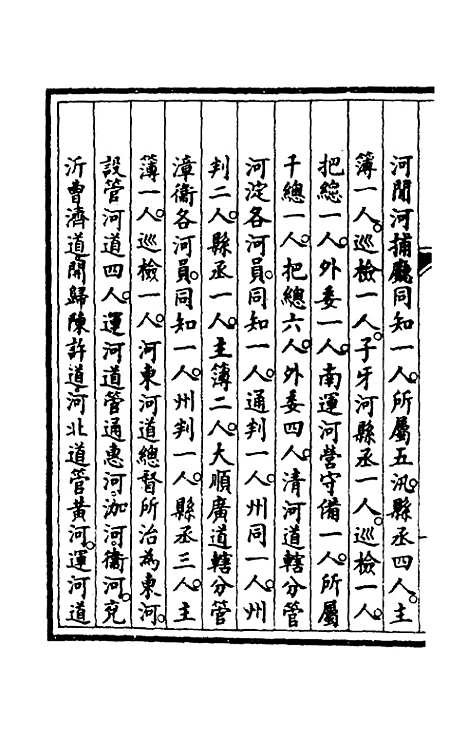 河間河捕廳同知一人。所屬五汛縣丞四人。主
簿一人。巡檢一人。子牙河縣丞一人。巡檢一人。
把總一人。外委一人。南運河營守備一人。所屬
千總一人。把總六人。外委四人。清河道轄分管
河淀各河員。同知一人。通判一人。州同一人。州
判二人。縣丞一人。主簿二人。大順廣道轄分管
漳衞各河員。同知一人。州判一人。縣丞三人。主
簿一人。巡檢一人。河東河道總督所治為東河。
設管河道四人。運河道管通惠河。泇河。衞河。兗
沂曹濟道。開歸陳許道。河北道管黃河。運河道